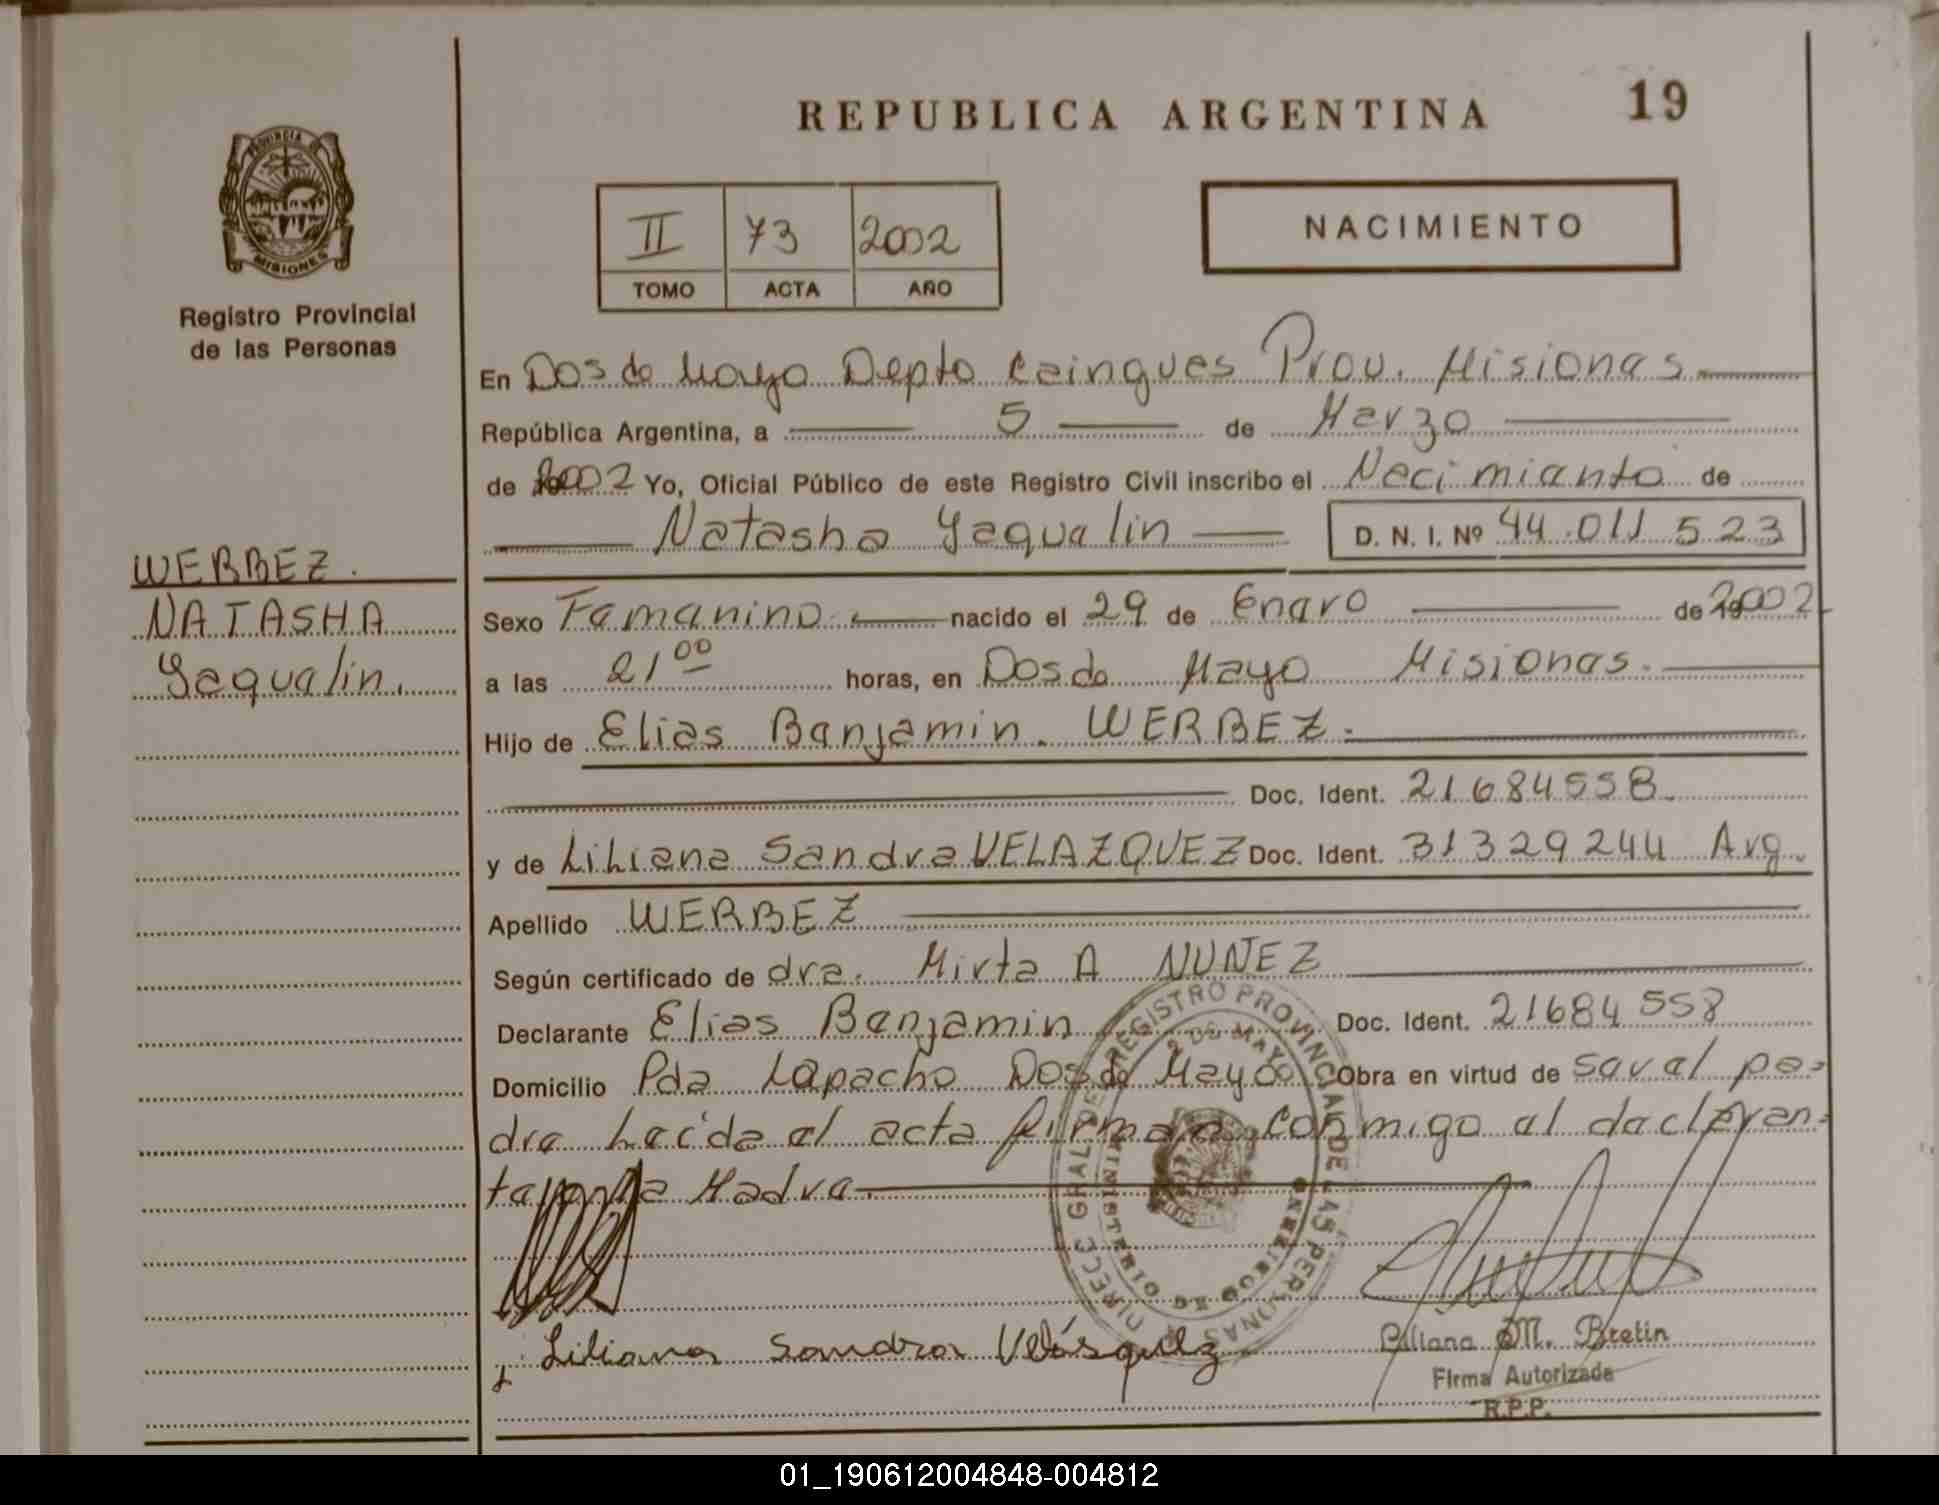 REPUBLICA ARGENTINA 19
PROVINCIA DE
MISIONES
Registro Provincial
de las Personas
II 73 2002
TOMO ACTA AÑO
NACIMIENTO
En Dos de Mayo Depto Caingues Prov. Misiones
República Argentina, a 5 de Marzo
de 2002 Yo, Oficial Público de este Registro Civil inscribo el Necimiento de
Natasha Yaqualin D. N. I. Nº 44.011 523
WERBEZ.
NATASHA
Yaqualin.
Sexo Femenino nacido el 29 de Enero de 2002
a las 21 00 horas, en Dos de Mayo Misiones.
Hijo de Elias Benjamin. WERBEZ.
Doc. Ident. 21684558
y de Liliana Sandra VELAZQUEZ Doc. Ident. 31329244 Arg.
Apellido WERBEZ
Según certificado de dra. Mirta A NUÑEZ
Declarante Elias Benjamin Doc. Ident. 21684558
Domicilio Pda Lapacho Dos de Mayo Obra en virtud de ser el pa-
dre Leída el acta firma conmigo el declaran-
te y la Madre
REGISTRO PROVINCIAL DE LAS PERSONAS
2 DE MAYO
MINISTERIO DE GOBIERNO
Liliana Sandra Velásquez
Liliana M. Bretin
Firma Autorizada
R.P.P.
01_190612004848-004812